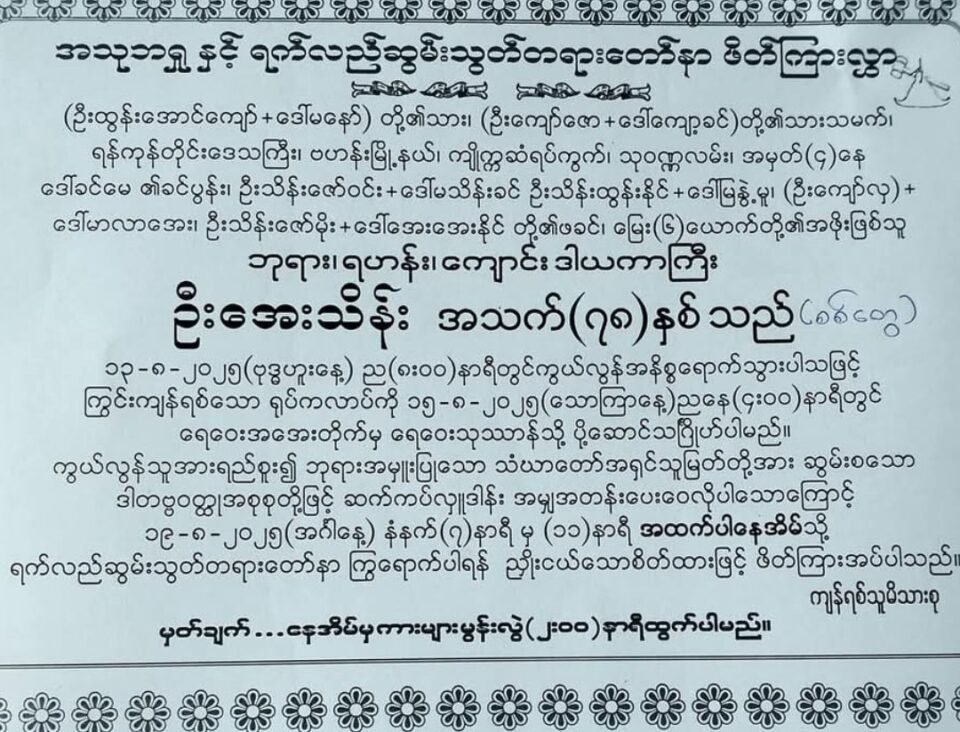 အသုဘရှု နှင့် ရက်လည်ဆွမ်းသွတ်တရားတော်နာ ဖိတ်ကြားလွှာ
(ဦးထွန်းအောင်ကျော်+ဒေါ်မနော်) တို့၏သား၊ (ဦးကျော်ဇော+ဒေါ်ကျော့ခင်)တို့၏သားသမက်၊
ရန်ကုန်တိုင်းဒေသကြီး၊ ဗဟန်းမြို့နယ်၊ ကျိုက္ကဆံရပ်ကွက်၊ သုဝဏ္ဏလမ်း၊ အမှတ်(၄)နေ
ဒေါ်ခင်မေ ၏ခင်ပွန်း၊ ဦးသိန်းဇော်ဝင်း+ဒေါ်မသိန်းခင် ဦးသိန်းထွန်းနိုင်+ဒေါ်မြနွဲ့မူ၊ (ဦးကျော်လှ)+
ဒေါ်မာလာအေး၊ ဦးသိန်းဇော်မိုး+ဒေါ်အေးအေးနိုင် တို့၏ဖခင်၊ မြေး(၆)ယောက်တို့၏အဖိုးဖြစ်သူ
ဘုရား၊ ရဟန်း၊ ကျောင်း ဒါယကာကြီး
ဦးအေးသိန်း အသက်(၇၈)နှစ်သည် (စစ်တွေ)
၁၃-၈-၂၀၂၅(ဗုဒ္ဓဟူးနေ့) ည(၈း၀၀)နာရီတွင်ကွယ်လွန်အနိစ္စရောက်သွားပါသဖြင့်
ကြွင်းကျန်ရစ်သော ရုပ်ကလာပ်ကို ၁၅-၈-၂၀၂၅(သောကြာနေ့)ညနေ(၄း၀၀)နာရီတွင်
ရေဝေးအအေးတိုက်မှ ရေဝေးသုဿာန်သို့ ပို့ဆောင်သင်္ဂြိုဟ်ပါမည်။
ကွယ်လွန်သူအားရည်စူး၍ ဘုရားအမှူးပြုသော သံဃာတော်အရှင်သူမြတ်တို့အား ဆွမ်းစသော
ဒါတဗ္ဗဝတ္ထုအစုစုတို့ဖြင့် ဆက်ကပ်လှူဒါန်း အမျှအတန်းပေးဝေလိုပါသောကြောင့်
၁၉-၈-၂၀၂၅(အင်္ဂါနေ့) နံနက်(၇)နာရီ မှ (၁၁)နာရီ အထက်ပါနေအိမ်သို့
ရက်လည်ဆွမ်းသွတ်တရားတော်နာ ကြွရောက်ပါရန် ညှိုးငယ်သောစိတ်ထားဖြင့် ဖိတ်ကြားအပ်ပါသည်။
ကျန်ရစ်သူမိသားစု
မှတ်ချက်...နေအိမ်မှကားများမွန်းလွဲ(၂း၀၀)နာရီထွက်ပါမည်။